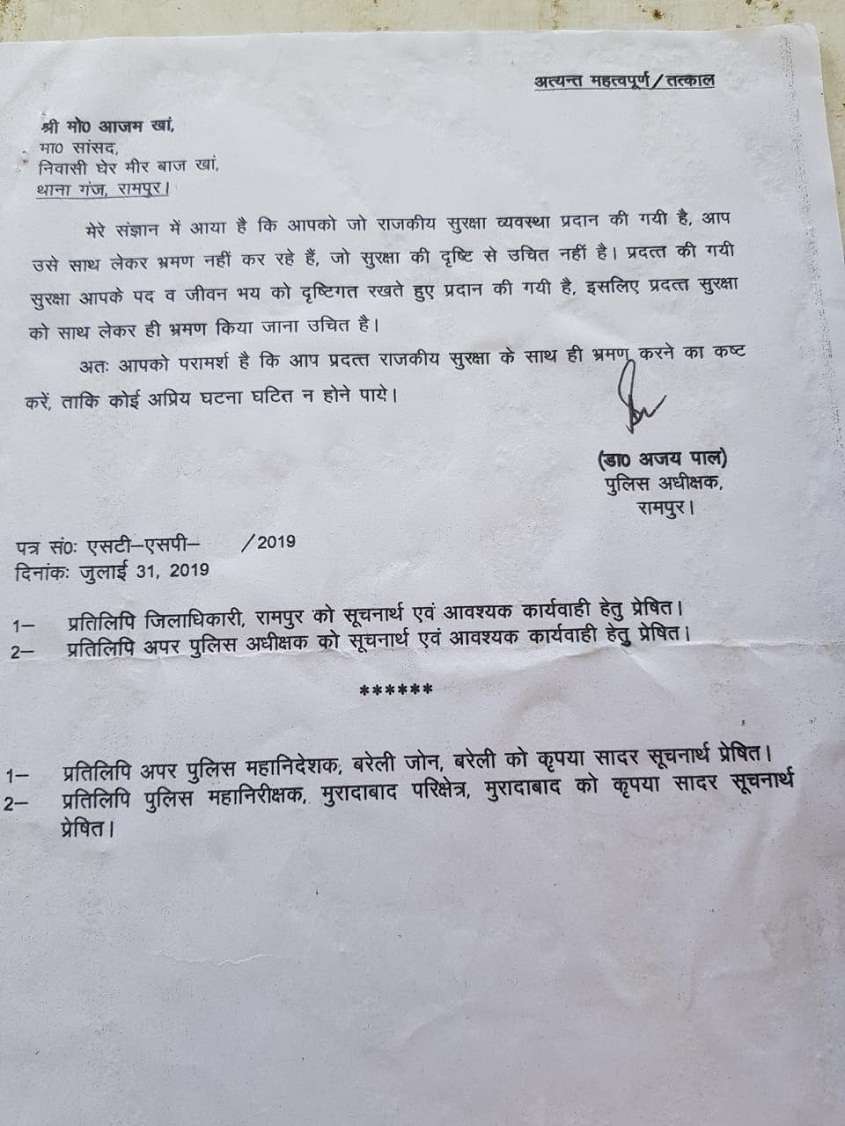 अत्यन्त महत्वपूर्ण/तत्काल
श्री मो0 आजम खां,
मा0 सांसद,
निवासी घेर मीर बाज खां,
थाना गंज, रामपुर।
मेरे संज्ञान में आया है कि आपको जो राजकीय सुरक्षा व्यवस्था प्रदान की गयी है, आप
उसे साथ लेकर भ्रमण नहीं कर रहे हैं, जो सुरक्षा की दृष्टि से उचित नहीं है। प्रदत्त की गयी
सुरक्षा आपके पद व जीवन भय को दृष्टिगत रखते हुए प्रदान की गयी है, इसलिए प्रदत्त सुरक्षा
को साथ लेकर ही भ्रमण किया जाना उचित है।
अतः आपको परामर्श है कि आप प्रदत्त राजकीय सुरक्षा के साथ ही भ्रमण करने का कष्ट
करें, ताकि कोई अप्रिय घटना घटित न होने पाये।
(डा0 अजय पाल)
पुलिस अधीक्षक,
रामपुर।
पत्र सं0: एसटी-एसपी- /2019
दिनांक: जुलाई 31, 2019
1- प्रतिलिपि जिलाधिकारी, रामपुर को सूचनार्थ एवं आवश्यक कार्यवाही हेतु प्रेषित।
2- प्रतिलिपि अपर पुलिस अधीक्षक को सूचनार्थ एवं आवश्यक कार्यवाही हेतु प्रेषित।
******
1- प्रतिलिपि अपर पुलिस महानिदेशक, बरेली जोन, बरेली को कृपया सादर सूचनार्थ प्रेषित।
2- प्रतिलिपि पुलिस महानिरीक्षक, मुरादाबाद परिक्षेत्र, मुरादाबाद को कृपया सादर सूचनार्थ
प्रेषित।